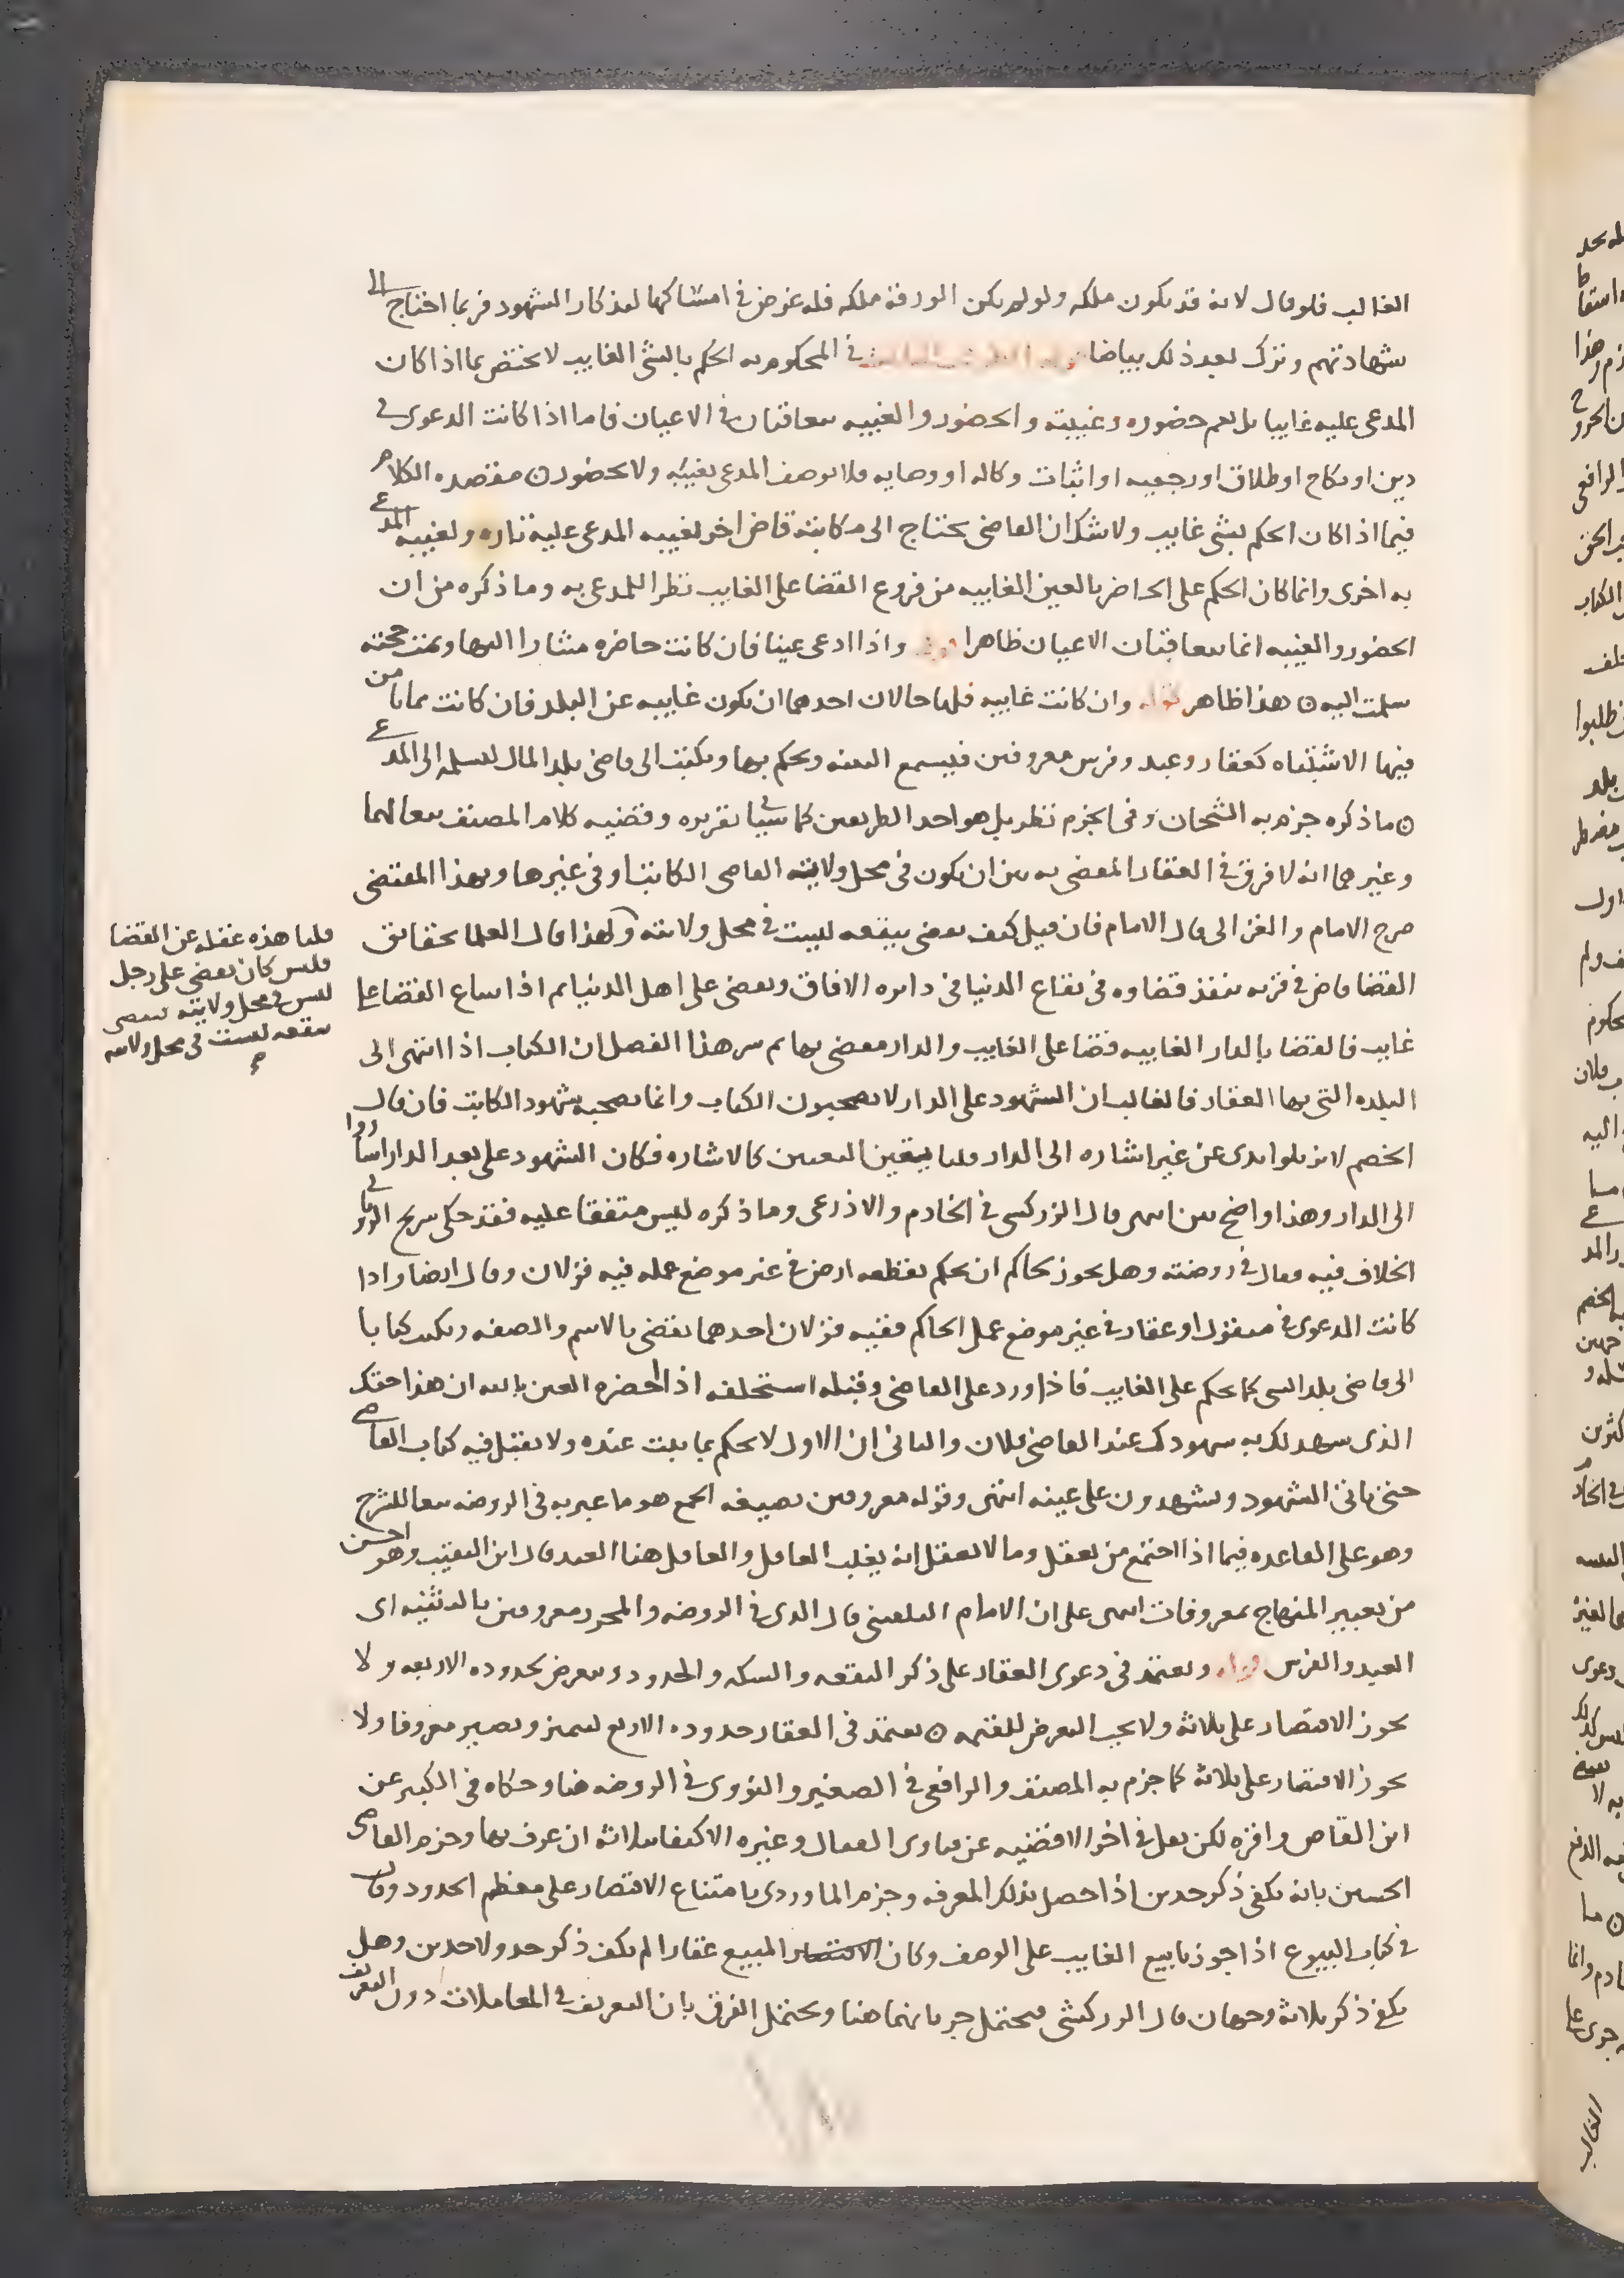 الغالب فلو قال لانه قد يكون ملكه ولو لم يكن الورقة ملكه فله غرض في امساكها لتذكار الشهود فربما احتاج الى
شهادتهم وترك بعد ذلك بياضا في المحكوم به الحكم بالشي الغايب لا يختص بما اذا كان
المدعى عليه غايبا بل يعم حضوره وغيبته والحضور والغيبه يتعاقبان في الاعيان فاما اذا كانت الدعوى في
دين او نكاح او طلاق او رجعيه او اثبات وكاله او وصايه فلا يوصف المدعى بغيبه ولا بحضور ۞ مقصده الكلام
فيما اذا كان الحكم بشي غايب ولا شك ان القاضي يحتاج الى مكاتبة قاض اخر لغيبه المدعى عليه تاره ولغيبه المدعى
به اخرى وانما كان الحكم على الحاضر بالعين الغايبه من فروع القضا على الغايب نظرا للمدعى به وما ذكره من ان
الحضور والغيبه انما يتعاقبان الاعيان ظاهرا واذا ادعى عينا فان كانت حاضره مشارا اليها وتمت حجته
سلمت اليه ۞ هذا ظاهر قوله وان كانت غايبه فلها حالان احدهما ان تكون غايبه عن البلد فان كانت مما يامن
فيها الاشتباه كعقار وعبد وفرس معروفين فيسمع البينه ويحكم بها ويكتب الى قاضي بلد المال ليسلمه الى المدعي
۞ ما ذكره جزم به الشيخان وفي الجزم نظر بل هو احد الطريقين كما سياتي تقريره وقضيه كلام المصنف تبعا لهما
وغيرهما انه لا فرق في العقار المقضي به بين ان يكون في محل ولاية القاضي الكاتب او في غيرها وبهذا المقتضى
صرح الامام والغزالي قال الامام فان قيل كيف يقضي ببقعه ليست في محل ولايته ولهذا قال العلما بحقايق
القضا قاض في قريه ينفذ قضاوه في بقاع الدنيا في دايره الافاق ويقضي على اهل الدنيا ثم اذا ساغ القضا على
غايب فالقضا بالدار الغايبه قضا على الغايب والدار مقضي بها ثم سر هذا الفصل ان الكتاب اذا انتهى الى
البلده التي بها العقار فالغالب ان الشهود على الدار لا يصحبون الكتاب وانما يصحبه شهود الكاتب فان قال
الخصم لا تزيلوا يدي عن غير اشاره الى الدار قلنا يتعين التعيين كالاشاره فكان الشهود على بعد الدار اشاروا
الى الدار وهذا واضح بين انتهى قال الزركشي في الخادم والاذرعي وما ذكره ليس متفقا عليه فقد حكى شريح الروياني
الخلاف فيه فقال في روضته وهل يجوز لحاكم ان يحكم بقطعه ارض في غير موضع عمله فيه قولان وقال ايضا واذا
كانت الدعوى في منقول او عقار في غير موضع عمل الحاكم ففيه قولان احدهما يقضي بالاسم والصفه ويكتب كتابا
الى قاضي بلد الشي كما يحكم على الغايب فاذا ورد على القاضي وقبله استحلفه اذا احضره العين بالله ان هذا حقك
الذي شهد لك به شهودك عند القاضي فلان والثاني ان الاول لا يحكم بما يثبت عنده ولا يقبل فيه كتاب القاضي
حتى ياتي الشهود ويشهدون على عينه انتهى وقوله معروفين بصيغه الجمع هو ما عبر به في الروضه تبعا للشرح
وهو على القاعده فيما اذا اجتمع من يعقل وما لا يعقل انه يغلب العاقل والعاقل هنا العبد قال ابن النقيب وهو احسن
من تعبير المنهاج بمعروفات انتهى على ان الامام البلقيني قال الذي في الروضه والمحرر معروفين بالتثنيه اى
العبد والفرس قوله ويعتمد في دعوى العقار على ذكر البقعه والسكه والحدود ويتعرض لحدوده الاربعه ولا
يجوز الاقتصار على ثلاثة ولا يجب التعرض للقيمه ۞ يعتمد في العقار حدوده الاربع ليتميز ويصير معروفا ولا
يجوز الاقتصار على ثلاثه كما جزم به المصنف والرافعي في الصغير والنووي في الروضه هنا وحكاه في الكبير عن
ابن القاص واقره لكن نقل في اخر الاقضيه عن فتاوى القفال وغيره الاكتفا بثلاثة ان عرف بها وجزم القاضي
الحسين بانه يكفي ذكر حدين اذا حصل بذلك المعرفه وجزم الماوردي بامتناع الاقتصار على معظم الحدود وقال
في كتاب البيوع اذا جوزنا بيع الغايب على الوصف وكان المبيع عقارا لم يكف ذكر حد ولا حدين وهل
يكفي ذكر ثلاثة وجهان قال الزركشي فيحتمل جريانهما هنا ويحتمل الفرق بان التعريف في المعاملات دون التعريف
قلنا هذه غفله عن القضا
فليس كان يقضي على رجل
ليس في محل ولايته
ببقعه ليست في محل ولايته